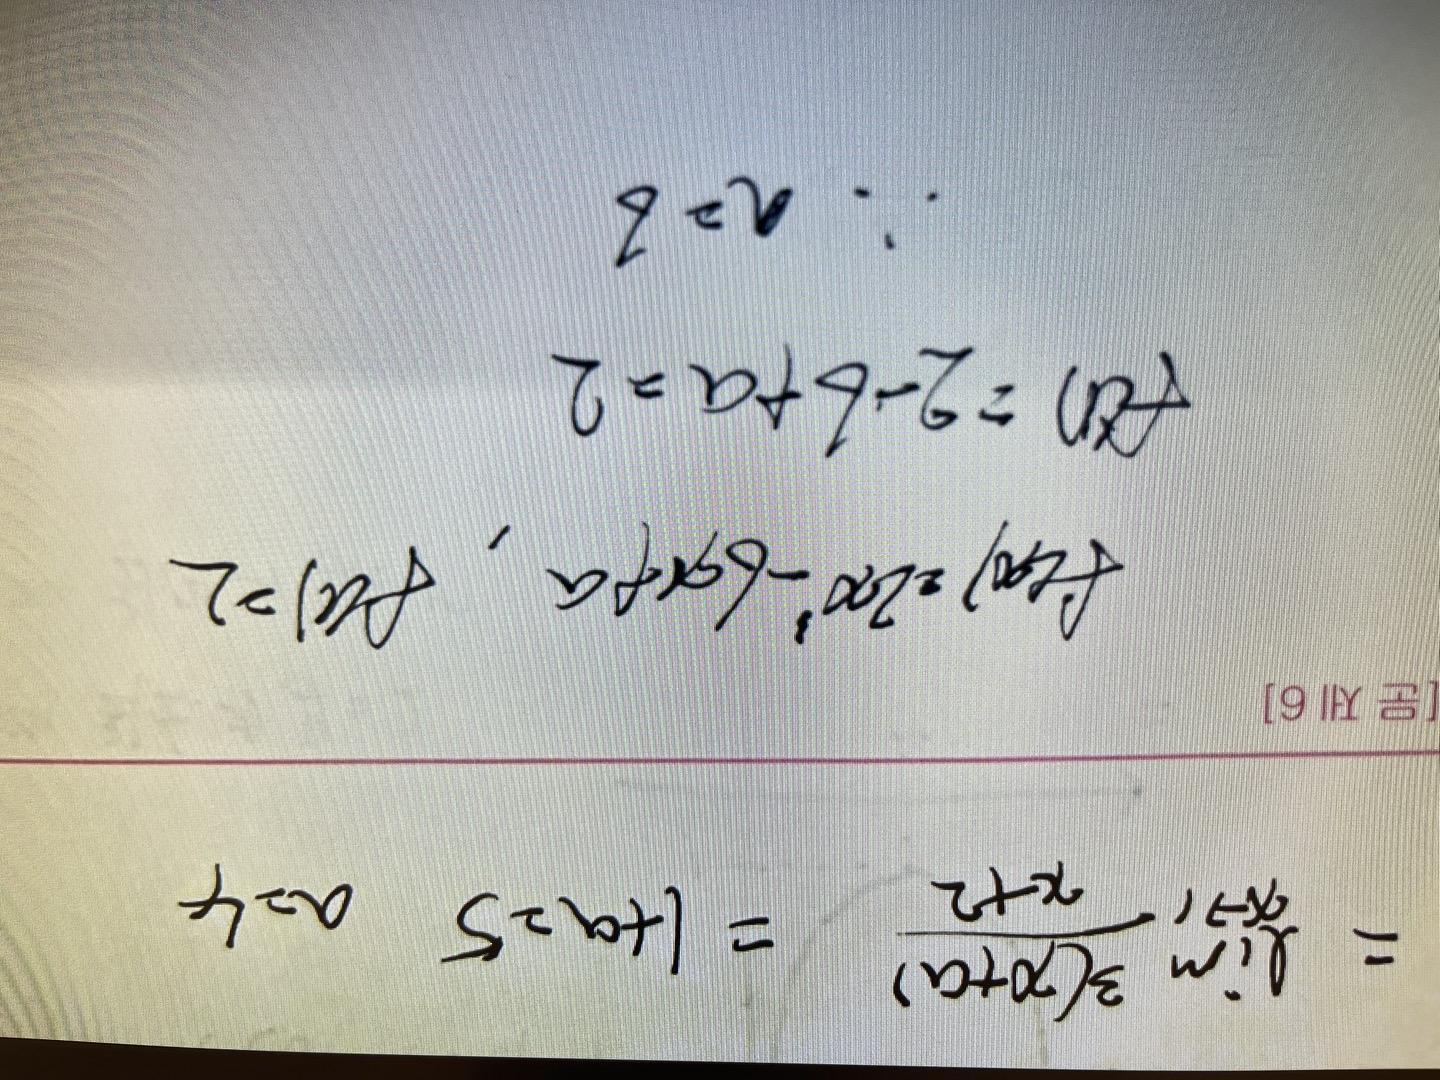 = lim x→1 3(x+a)/(x+2) = 1+a=5 a=4
[문제 6]
f(x)=2x²-6x+a, f(1)=2
f(1)=2-6+a=2
∴ a=6